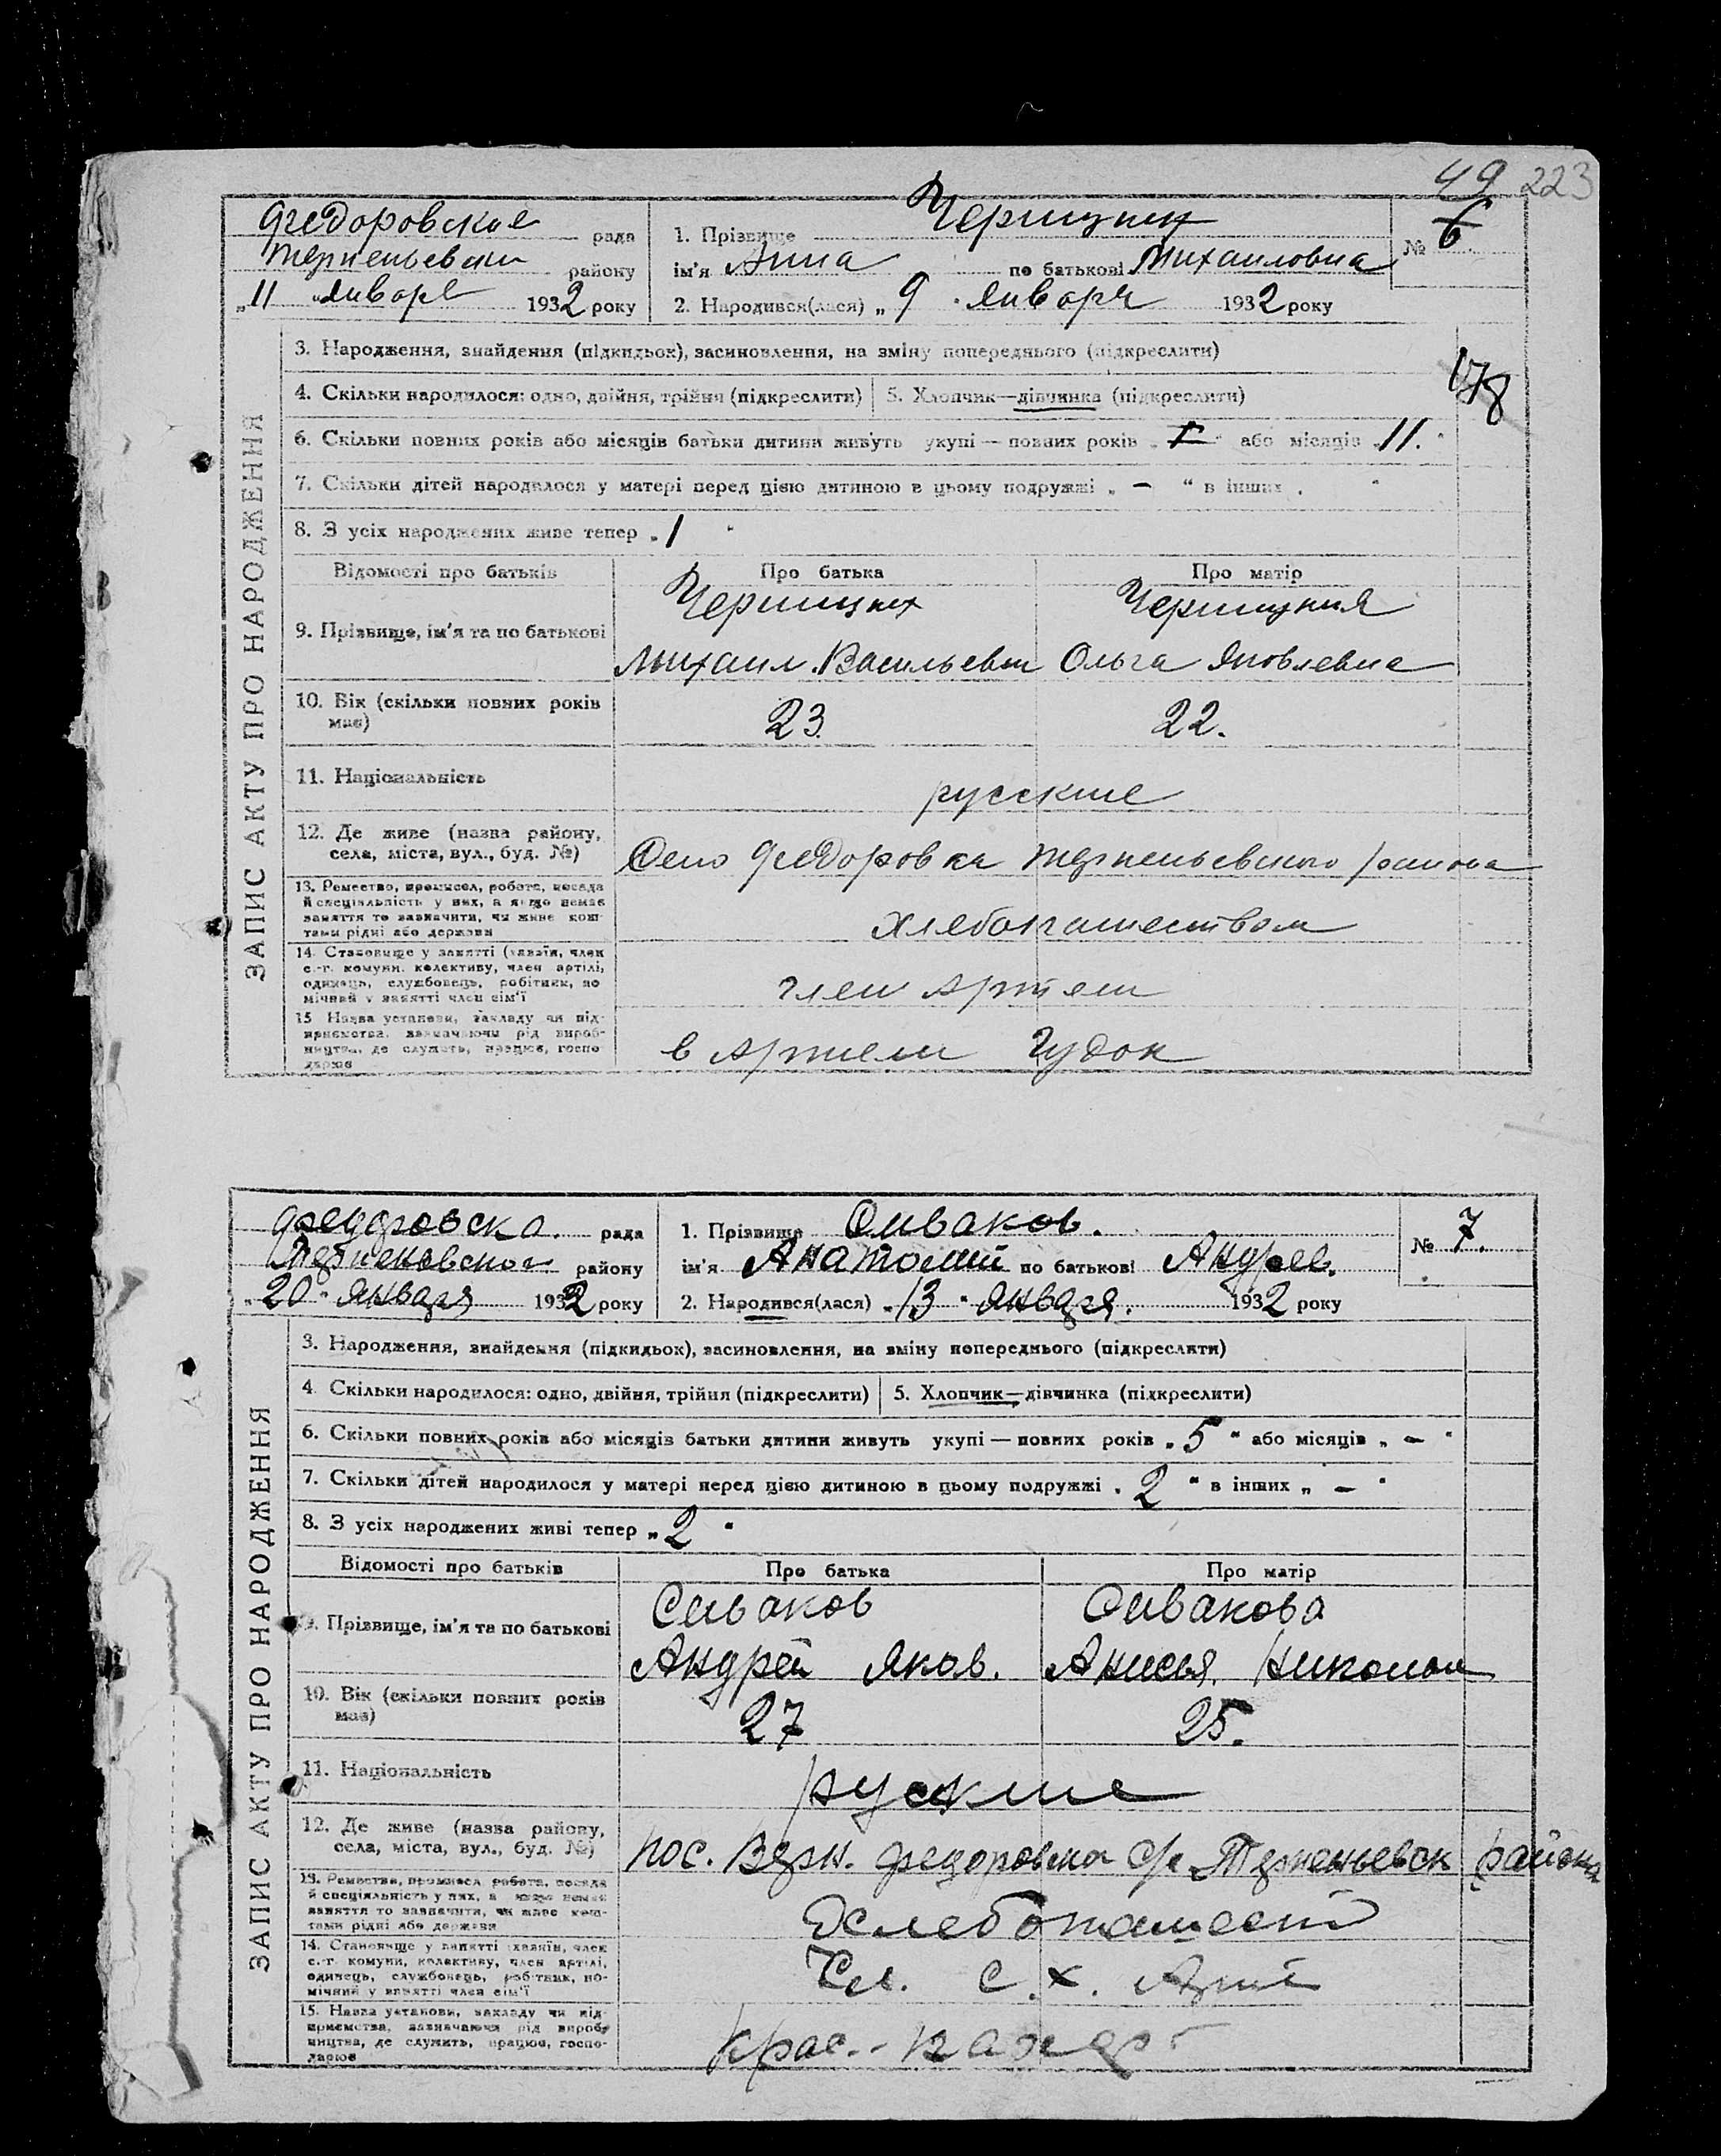 49 223
Федоровское рада
района
„11 января 1932 року
1. Прізвище
ім'я Анна по батькові Михаиловна
2. Народився(лася) „ 9 " января 1932 року
№ 6
ЗАПИС АКТУ ПРО НАРОДЖЕННЯ
3. Народження, знайдення (підкидьок), засиновлення, на зміну попереднього (підкреслити)
178
4. Скільки народилося: одно, двійня, трійня (підкреслити) 5. Хлопчик—дівчинка (підкреслити)
6. Скільки повних років або місяців батьки дитини живуть укупі — повних років „ " або місяців „ 11. "
7. Скільки дітей народилося у матері перед цією дитиною в цьому подружжі „ — " в інших „ "
8. З усіх народжених живе тепер „ 1 "
Відомості про батьків Про батька Про матір
9. Прізвище, ім'я та по батькові
Михаил Васильевич Ольга Яковлевна
10. Вік (скільки повних років має) 23. 22.
11. Національність русские
12. Де живе (назва району, села, міста, вул., буд. №) Село Федоровка района
13. Ремество, промисел, робота, посада й спеціяльність у них, а якщо немає заняття то зазначити, чи живе коштами рідні або держави хлебопашеством
14. Становище у занятті (хазяїн, член с.-г. комуни, колективу, член артілі, одинець, службовець, робітник, помічний у занятті член сім'ї член Артели
15 Назва установи, закладу чи підприємства, зазначаючи рід виробництва, де служить, працює, господарює в Артели Гудок
рада
району
„20" января 1932 року
1. Прізвище Сиваков.
ім'я Анатолий по батькові Андреев.
2. Народився(лася) „13" января. 1932 року
№ 7.
ЗАПИС АКТУ ПРО НАРОДЖЕННЯ
3. Народження, знайдення (підкидьок), засиновлення, на зміну попереднього (підкреслити)
4. Скільки народилося: одно, двійня, трійня (підкреслити) 5. Хлопчик—дівчинка (підкреслити)
6. Скільки повних років або місяців батьки дитини живуть укупі — повних років „ 5 " або місяців „ — "
7. Скільки дітей народилося у матері перед цією дитиною в цьому подружжі „ 2 " в інших „ — "
8. З усіх народжених живі тепер „ 2 "
Відомості про батьків Про батька Про матір
9. Прізвище, ім'я та по батькові Сиваков Сивакова
Андрей Яков. Анисья
10. Вік (скільки повних років має) 27 25.
11. Національність руские
12. Де живе (назва району, села, міста, вул., буд. №) пос. Верх. с/с района
13. Ремество, промисел, робота, посада й спеціяльність у них, а якщо немає заняття то зазначити, чи живе коштами рідні або держави
14. Становище у занятті (хазяїн, член с.-г. комуни, колективу, член артілі, одинець, службовець, робітник, помічний у занятті член сім'ї Чл. С.Х. Арт
15. Назва установи, закладу чи підприємства, зазначаючи рід виробництва, де служить, працює, господарює Крас. пахарь